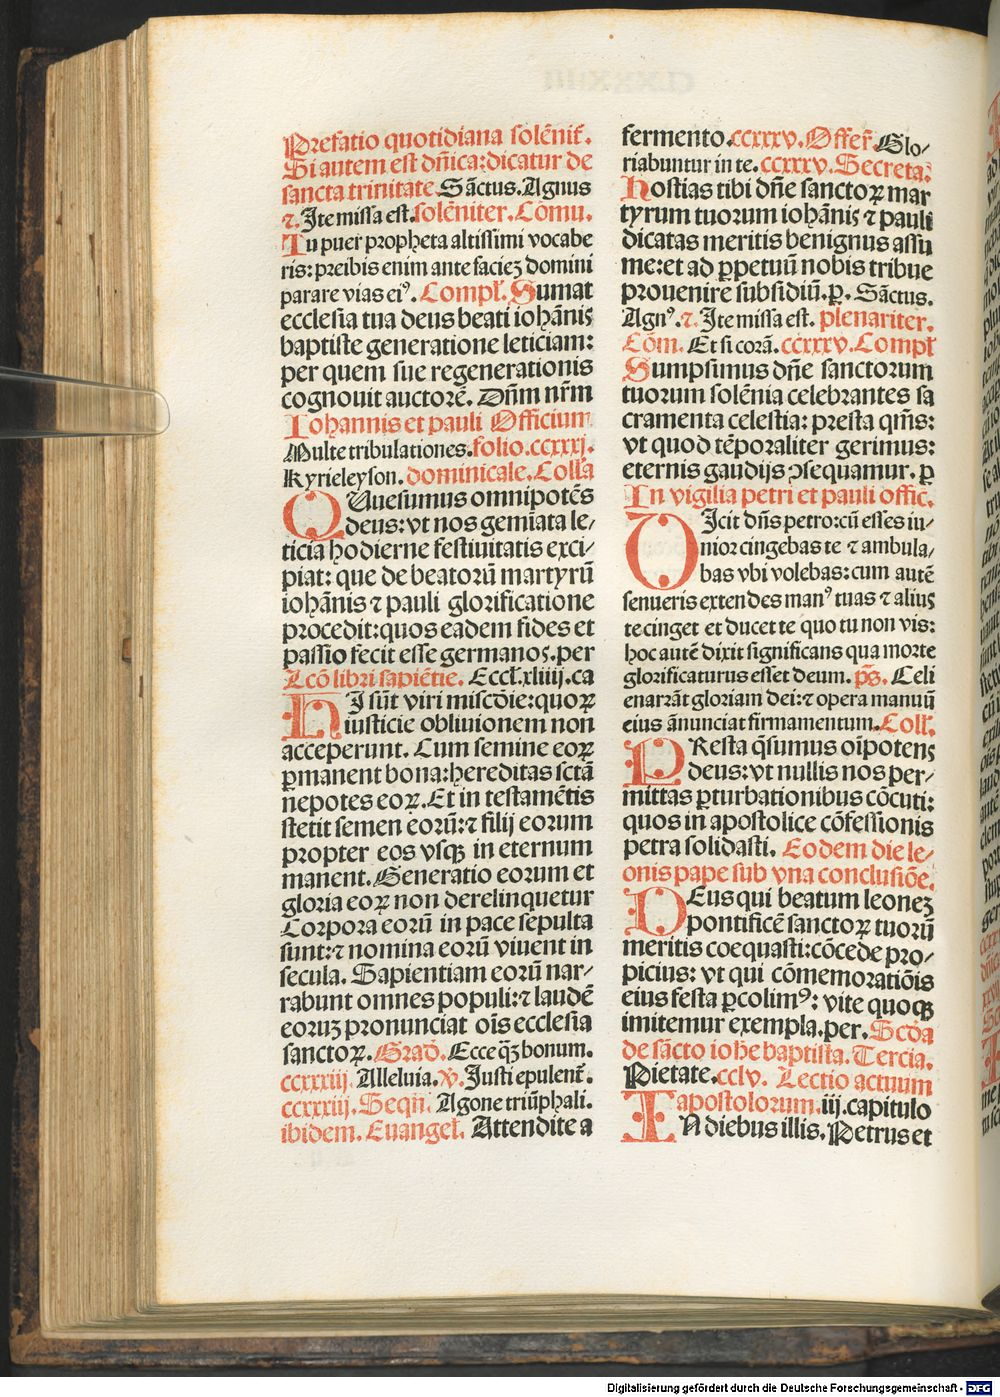 Prefatio quotidiana solēnit̄.
Si autem est dn̄ica:dicatur de
sancta trinitate Sāctus. Agnus
⁊. Ite missa est. solēniter. Cōmu.
Tu puer propheta altissimi vocabe
ris: preibis enim ante facieʒ domini
parare vias eiꝰ. Compl̄. Sumat
ecclesia tua deus beati iohānis
baptiste generatione leticiam:
per quem sue regenerationis
cognouit auctorē. Dn̄m nr̄m
Iohannis et pauli Officium
Multe tribulationes. folio.ccxxxj.
Kyrieleyson. dominicale. Coll̄a
QUuesumus omnipotēs
deus: vt nos gemiata le/
ticia hodierne festiuitatis exci/
piat: que de beatorū martyrū
iohānis ⁊ pauli glorificatione
procedit: quos eadem fides et
passio fecit esse germanos. per
Lcō libri sapiētie. Eccl̄.xliiij.ca
HI sūt viri miscōie: quoꝝ
iusticie obliuionem non
acceperunt. Cum semine eoꝝ
ꝑmanent bona: hereditas sctā
nepotes eoꝝ. Et in testamētis
stetit semen eorū: ⁊ filij eorum
propter eos vsqꝫ in eternum
manent. Generatio eorum et
gloria eoꝝ non derelinquetur
Corpora eorū in pace sepulta
sunt: ⁊ nomina eorū viuent in
secula. Sapientiam eorū nar/
rabunt omnes populi: ⁊ laudē
eoruʒ pronunciat oīs ecclesia
sanctoꝝ. Grad̄. Ecce q̄ʒ bonum.
ccxxxiij. Alleluia. ℣. Justi epulent̄.
ccxxxiij. Seqn̄. Agone triūphali.
ibidem. Euangel̄. Attendite a
fermento. ccxxxv. Offer̄. Glo/
riabuntur in te. ccxxxv. Secreta.
Hostias tibi dn̄e sanctoꝝ mar
tyrum tuorum iohānis ⁊ pauli
dicatas meritis benignus assu
me: et ad ꝑpetuū nobis tribue
prouenire subsidiū. ꝑ. Sāctus.
Agnꝰ. ⁊. Ite missa est. plenariter.
Cōm. Et si corā. ccxxxv. Compl̄
Sumpsimus dn̄e sanctorum
tuorum solēnia celebrantes sa
cramenta celestia: presta qm̄s:
vt quod tēporaliter gerimus:
eternis gaudijs ↄsequamur. ꝑ
In vigilia petri et pauli offic.
DIcit dn̄s petro: cū esses iu/
nior cingebas te ⁊ ambula/
bas vbi volebas: cum autē
senueris extendes manꝰ tuas ⁊ alius
te cinget et ducet te quo tu non vis:
hoc autē dixit significans qua morte
glorificaturus esset deum. p̄s. Celi
enarrāt gloriam dei: ⁊ opera manuū
eius ānunciat firmamentum. Coll̄.
PResta q̄sumus oīpotens
deus: vt nullis nos per/
mittas ꝑturbationibus cōcuti:
quos in apostolice cōfessionis
petra solidasti. Eodem die le/
onis pape sub vna conclusiōe.
DEus qui beatum leoneʒ
pontificē sanctoꝝ tuorū
meritis coequasti: cōcede pro/
picius: vt qui cōmemoratiōis
eius festa ꝑcolimꝰ: vite quoqꝫ
imitemur exempla. per. Scd̄a
de sācto iohe baptista. Tercia.
Pietate. cclv. Lectio actuum
apostolorum. iij. capitulo
IN diebus illis. Petrus et
Digitalisierung gefördert durch die Deutsche Forschungsgemeinschaft - DFG